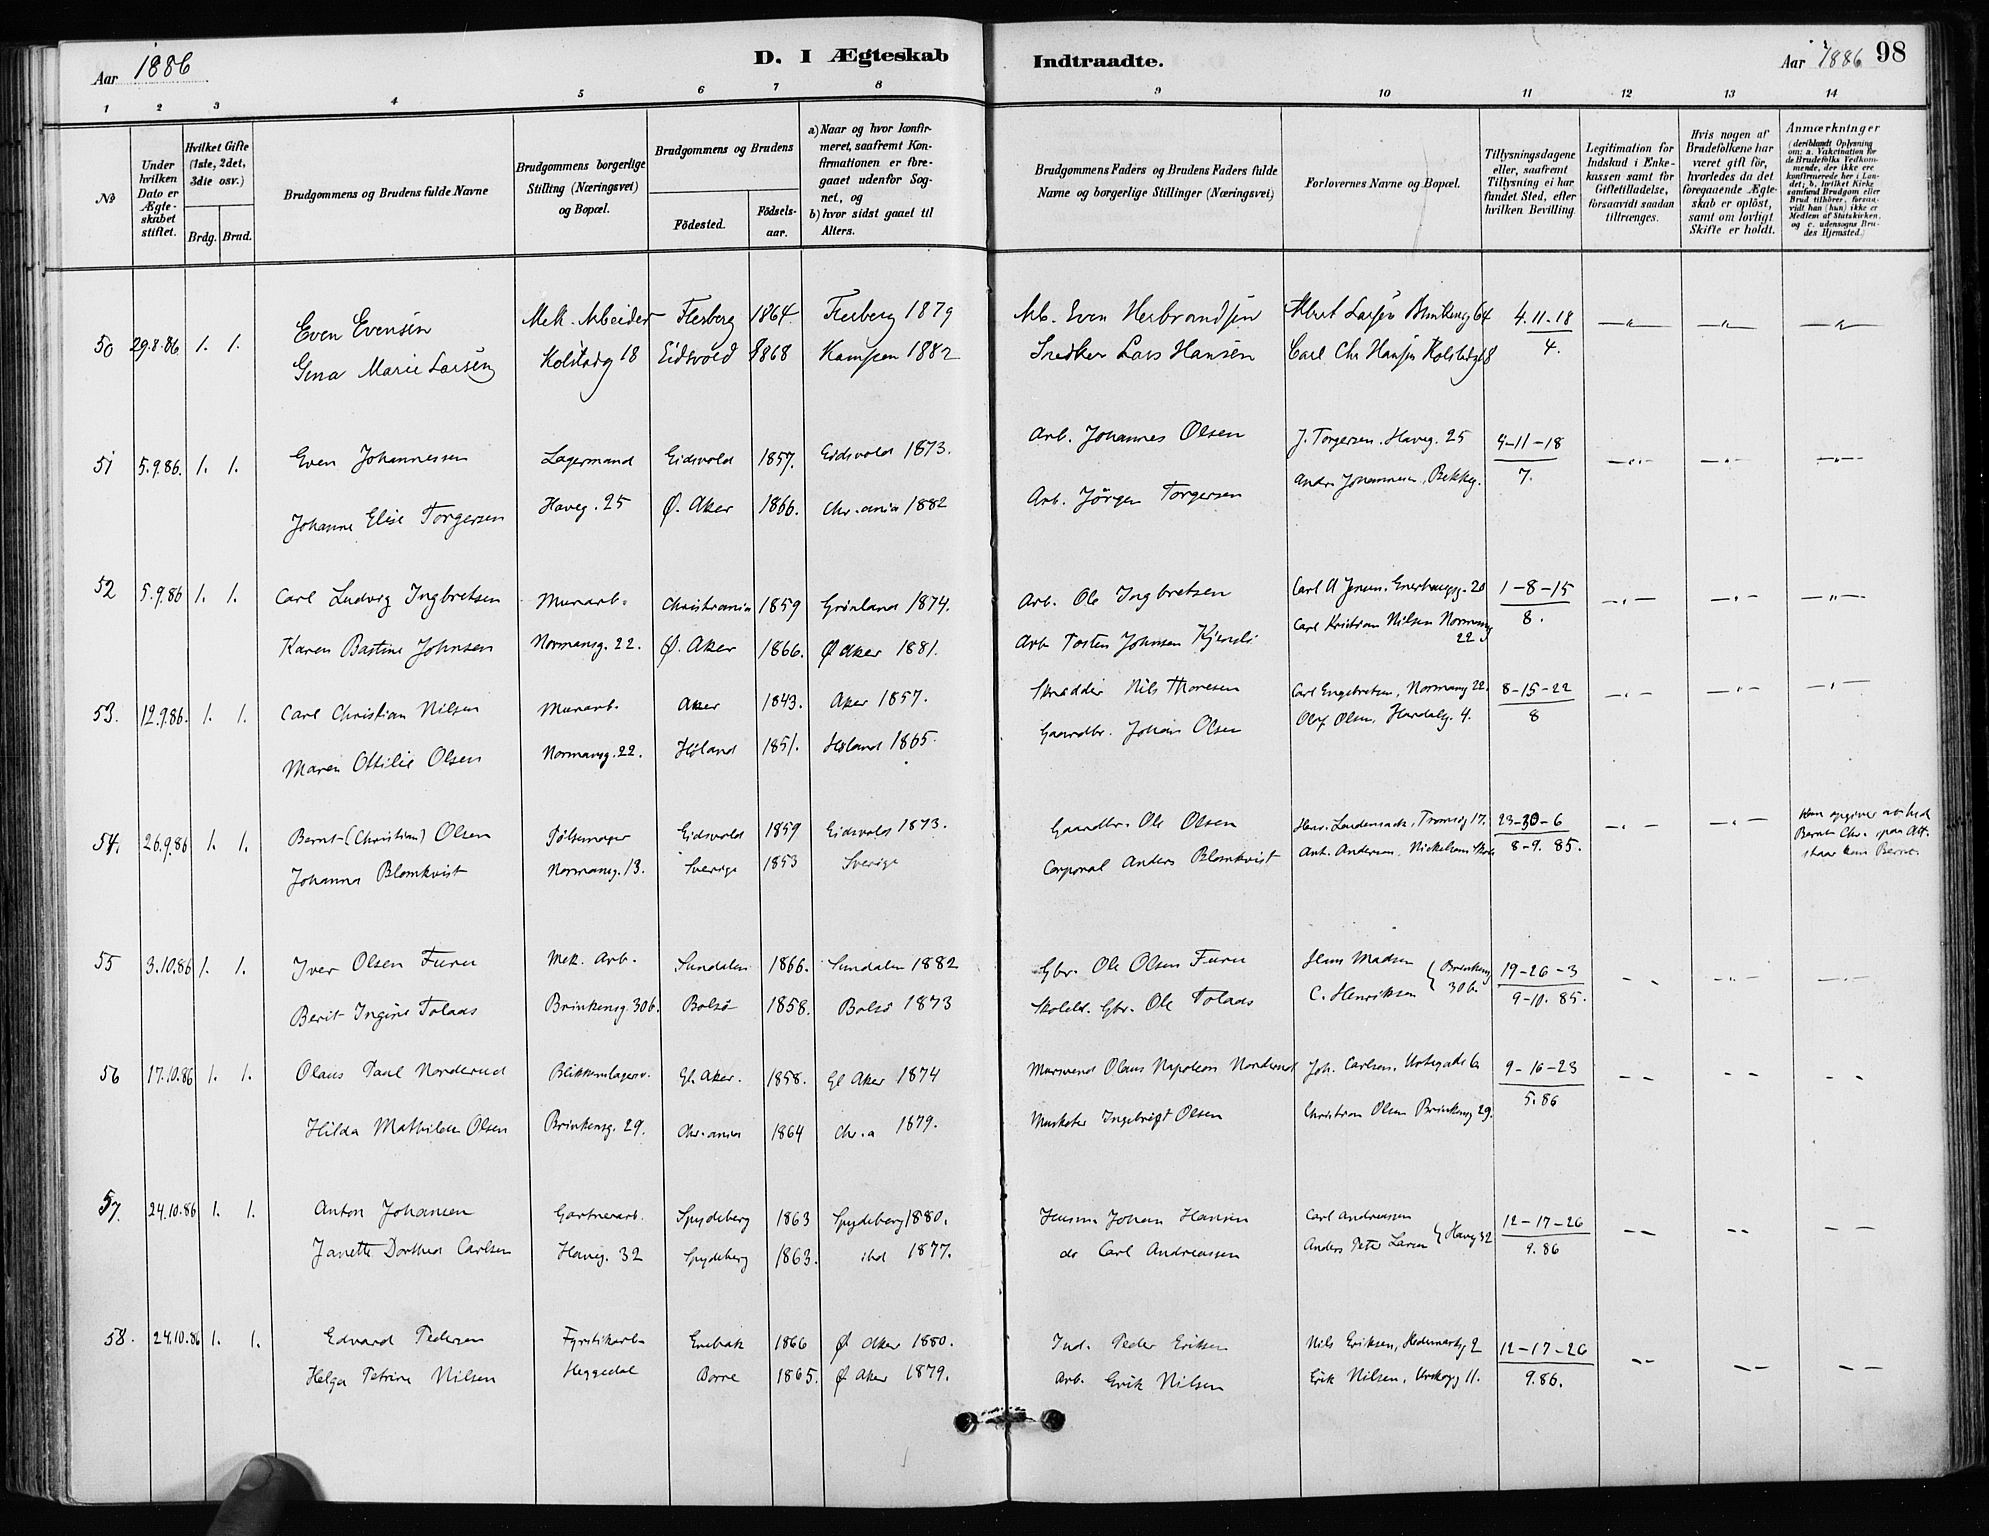 Aar 1886
D. I Ægteskab Indtraadte.
Aar 1886 98
1 2 3 4 5 6 7 8 9 10 11 12 13 14
No
Under hvilken Dato er Ægteskabet stiftet.
Hvilket Gifte (1ste, 2det, 3die osv.)
Brdg. Brud.
Brudgommens og Brudens fulde Navne
Brudgommens borgerlige Stilling (Næringsvei) og Bopæl.
Brudgommens og Brudens
Födested.
Födsels-aar.
a) Naar og hvor konfirmeret, saafremt Konfirmationen er foregaaet udenfor Sognet, og
b) hvor sidst gaaet til Alters.
Brudgommens Faders og Brudens Faders fulde Navne og borgerlige Stillinger (Næringsvei)
Forlovernes Navne og Bopæl.
Tillysningsdagene eller, saafremt Tillysning ei har fundet Sted, efter hvilken Bevilling.
Legitimation for Indskud i Enkekassen samt for Giftetilladelse, forsaavidt saadan tiltrænges.
Hvis nogen af Brudefolkene har været gift för, hvorledes da det foregaaende Ægteskab er oplöst, samt om lovligt Skifte er holdt.
Anmærkninger (deriblandt Oplysning om: a. Vakcination for de Brudefolks Vedkommende, der ikke ere konfirmerede her i Landet; b. hvilket Kirkesamfund Brudgom eller Brud tilhörer, forsaavidt han (hun) ikke er Medlem af Statskirken, og c. udensogns Brudes Hjemsted.)
50 29.8.86 1. 1. Even Evensen Mek. Arbeider Flesberg 1864. Flesberg 1879 Arb. Even Herbrandsen Albert Larsen 64 4.11.18
Gina Marie Larsen Kolstadg 18 Eidsvold 1868 Kampen 1882 Snedker Lars Hansen Carl Chr Hansen Kolstadg 18 4.
51 5.9.86. 1. 1. Even Johannessen Lagermand Eidsvold 1857. Eidsvold 1873. Arb. Johannes Olsen J. Torgersen. Haveg. 25 4-11-18
Johanne Elise Torgersen Haveg. 25 Ø. Aker 1866. Chr.ania 1882 Arb. Jörgen Torgersen Andr Johannesen, Bekkeg. 7.
52 5.9.86 1. 1. Carl Ludvig Ingbretsen Murarb. Christiania 1859 Grönland 1874. Arb. Ole Ingbretsen Carl A Jensen. Enerhaugg. 20 1-8-15
Karen Bastine Johnsen Normansg. 22. Ø. Aker 1866. Ø Aker 1881. Arb Tosten Johnsen Carl Kristian Nilsen Normansg 22 8.
53. 12.9.86. 1. 1. Carl Christian Nilsen Murarb. Aker 1843. Aker 1857. Skrædder Nils Thoresen Carl Engebretsen, Normansg 22. 8-15-22
Maren Ottilie Olsen Normansg. 22. Höland 1851. Höland 1865. Gaardbr. Johan Olsen Olaf Olsen, 4. 8
54. 26.9.86 1. 1. Bernt (Christian) Olsen Pölsemager Eidsvold 1859 Eidsvold 1873. Gaardbr. Ole Olsen Tromsög 17. 23-30-6
Johanna Blomkvist Normansg. 13. Sverige 1853 Sverige Corporal Anders Blomkvist Ant. Andersen, 8-9. 85.
Han opgiver at hed Bernt Chr., paa Att. staar kun Bernt
55 3.10.86 1. 1. Iver Olsen Furu Mek. Arb. Sundalen 1866. Sundalen 1882 Gbr. Ole Olsen Furu Hans Madsen 19-26-3
Berit Ingine Tolaas Brinkensg. 30b. Bolsö 1858. Bolsö 1873 Gbr. Ole Tolaas C. Henriksen } Brinkeng 30b. 9-10. 85.
56 17.10.86 1. 1. Olaus Paul Norderud Blikkenslagersv. Gl. Aker. 1858. Gl Aker 1874 Mursvend Olaus Napoleon Norderud Joh. Carlsen, Urtegade 6 9-16-23
Hilda Mathilde Olsen Brinkensg. 29. Chr.ania 1864 Chr.a 1879. Musketer Ingebrigt Olsen Christian Olsen Brinkeng 29. 5.86
57. 24.10.86 1. 1. Anton Johansen Gartnerarb. Spydeberg 1863 Spydeberg 1880. Husm Johan Hansen Carl Andreassen 12-17-26
Janette Dorthea Carlsen Haveg. 32 Spydeberg 1863. ibd 1877. do Carl Andreassen Anders Peter Larsen } Haveg 32 9.86
58. 24.10.86 1. 1. Edvard Pedersen Fyrstikarb Enebak 1866 Ø Aker 1880. Ind. Peder Eriksen Nils Eriksen, Hedemarksg 2 12-17-26
Helga Petrine Nilsen Heggedal Borre 1865. Ø Aker 1879. Arb. Erik Nilsen Erik Nilsen, Urskogg 11. 9.86.